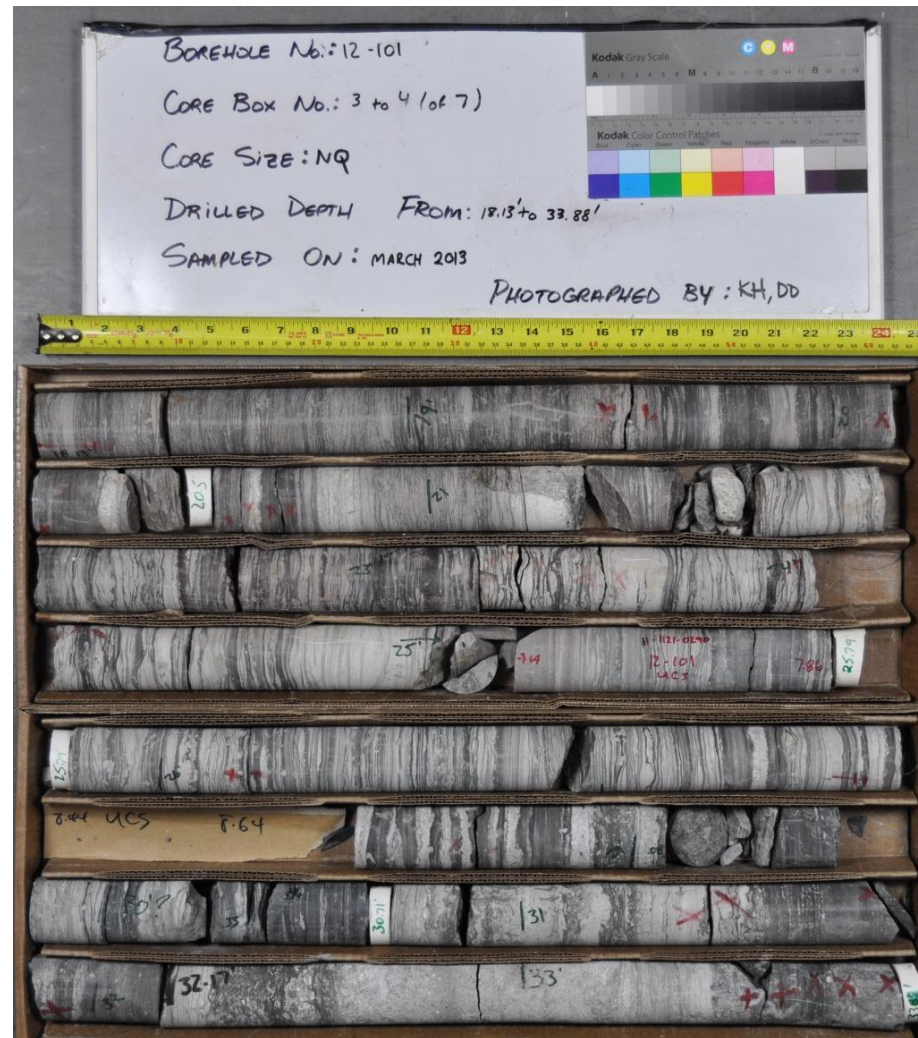 BOREHOLE No.: 12-101
CORE BOX No.: 3 to 4 (of 7)
CORE SIZE: NQ
DRILLED DEPTH FROM: 18.13' to 33.88'
SAMPLED ON: MARCH 2013
PHOTOGRAPHED BY: KH, DD
Kodak Gray Scale
C Y M
A 1 2 3 4 5 6 M 8 9 10 11 12 13 14 15 B 17 18 19
Kodak Color Control Patches
Blue Cyan Green Yellow Red Magenta White 3/Color Black
1 2 3 4 5 6 7 8 9 10 11 12 13 14 15 16 17 18 19 20 21 22 23 24
19'
20'
20.5
21
23
24
25'
7.64
11-1121-0290
12-101
UCS
7.86
25.79'
25.79
26'
UCS
8.64
30.71
31
32
32.17'
33'
33.88'